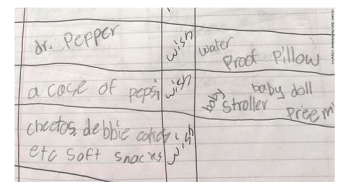 dr. Pepper
wish
water
Proof Pillow
a case of pepsi
wish
baby
baby doll
Stroller
Preemi
cheetos, debbie
etc soft snacks
wish